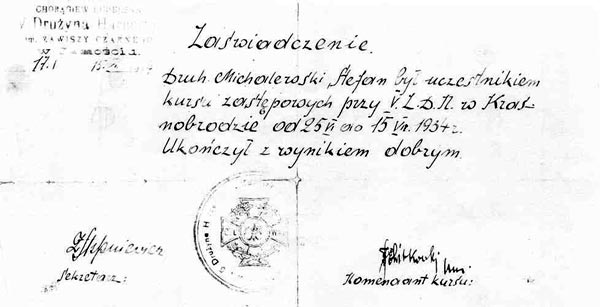 CHORĄGIEW
V Drużyna
im. ZAWISZY CZARNEGO
w Zamościu
17.I
Zaświadczenie.
Druh. Michalewski Stefan był uczestnikiem
kursu zastępowych przy V.Z.D.H. w Kras-
nobrodzie od 25 VI do 15 VII. 1934 r.
Ukończył z wynikiem dobrym.
Sekretarz:
Komendant kursu: